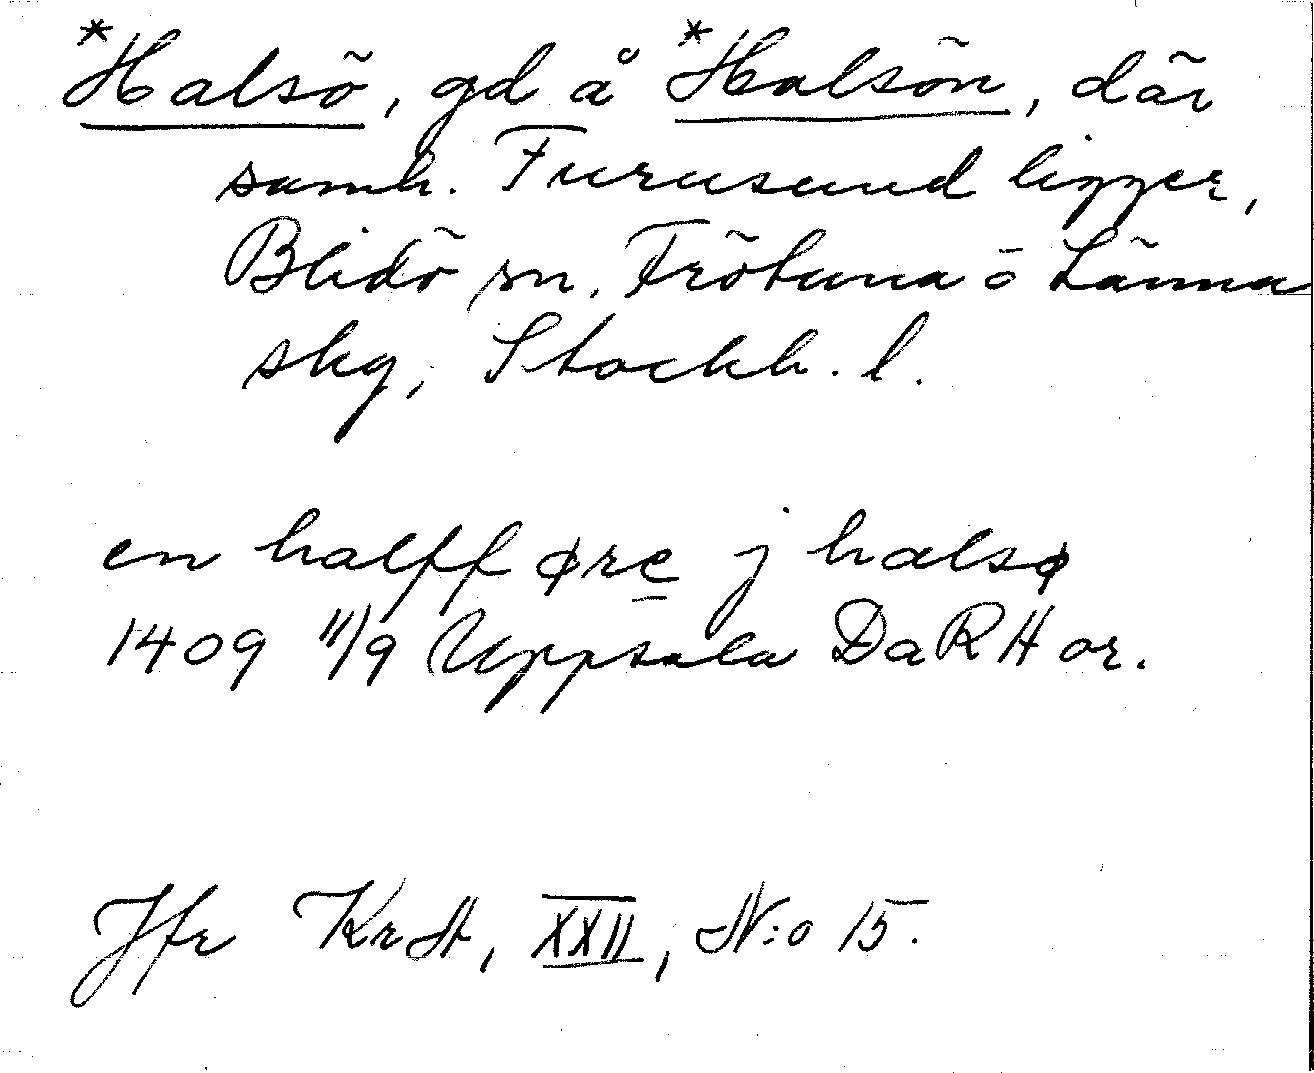 *Halsö, gd å *Halsön, där
samh. Furusund ligger,
Blidö sn, Frötuna o Länna
skg, Stockh. l.
en halff øre j halsø
1409 11/9 Uppsala DaRH or.
Jfr KrH, XXII, N:o 15.